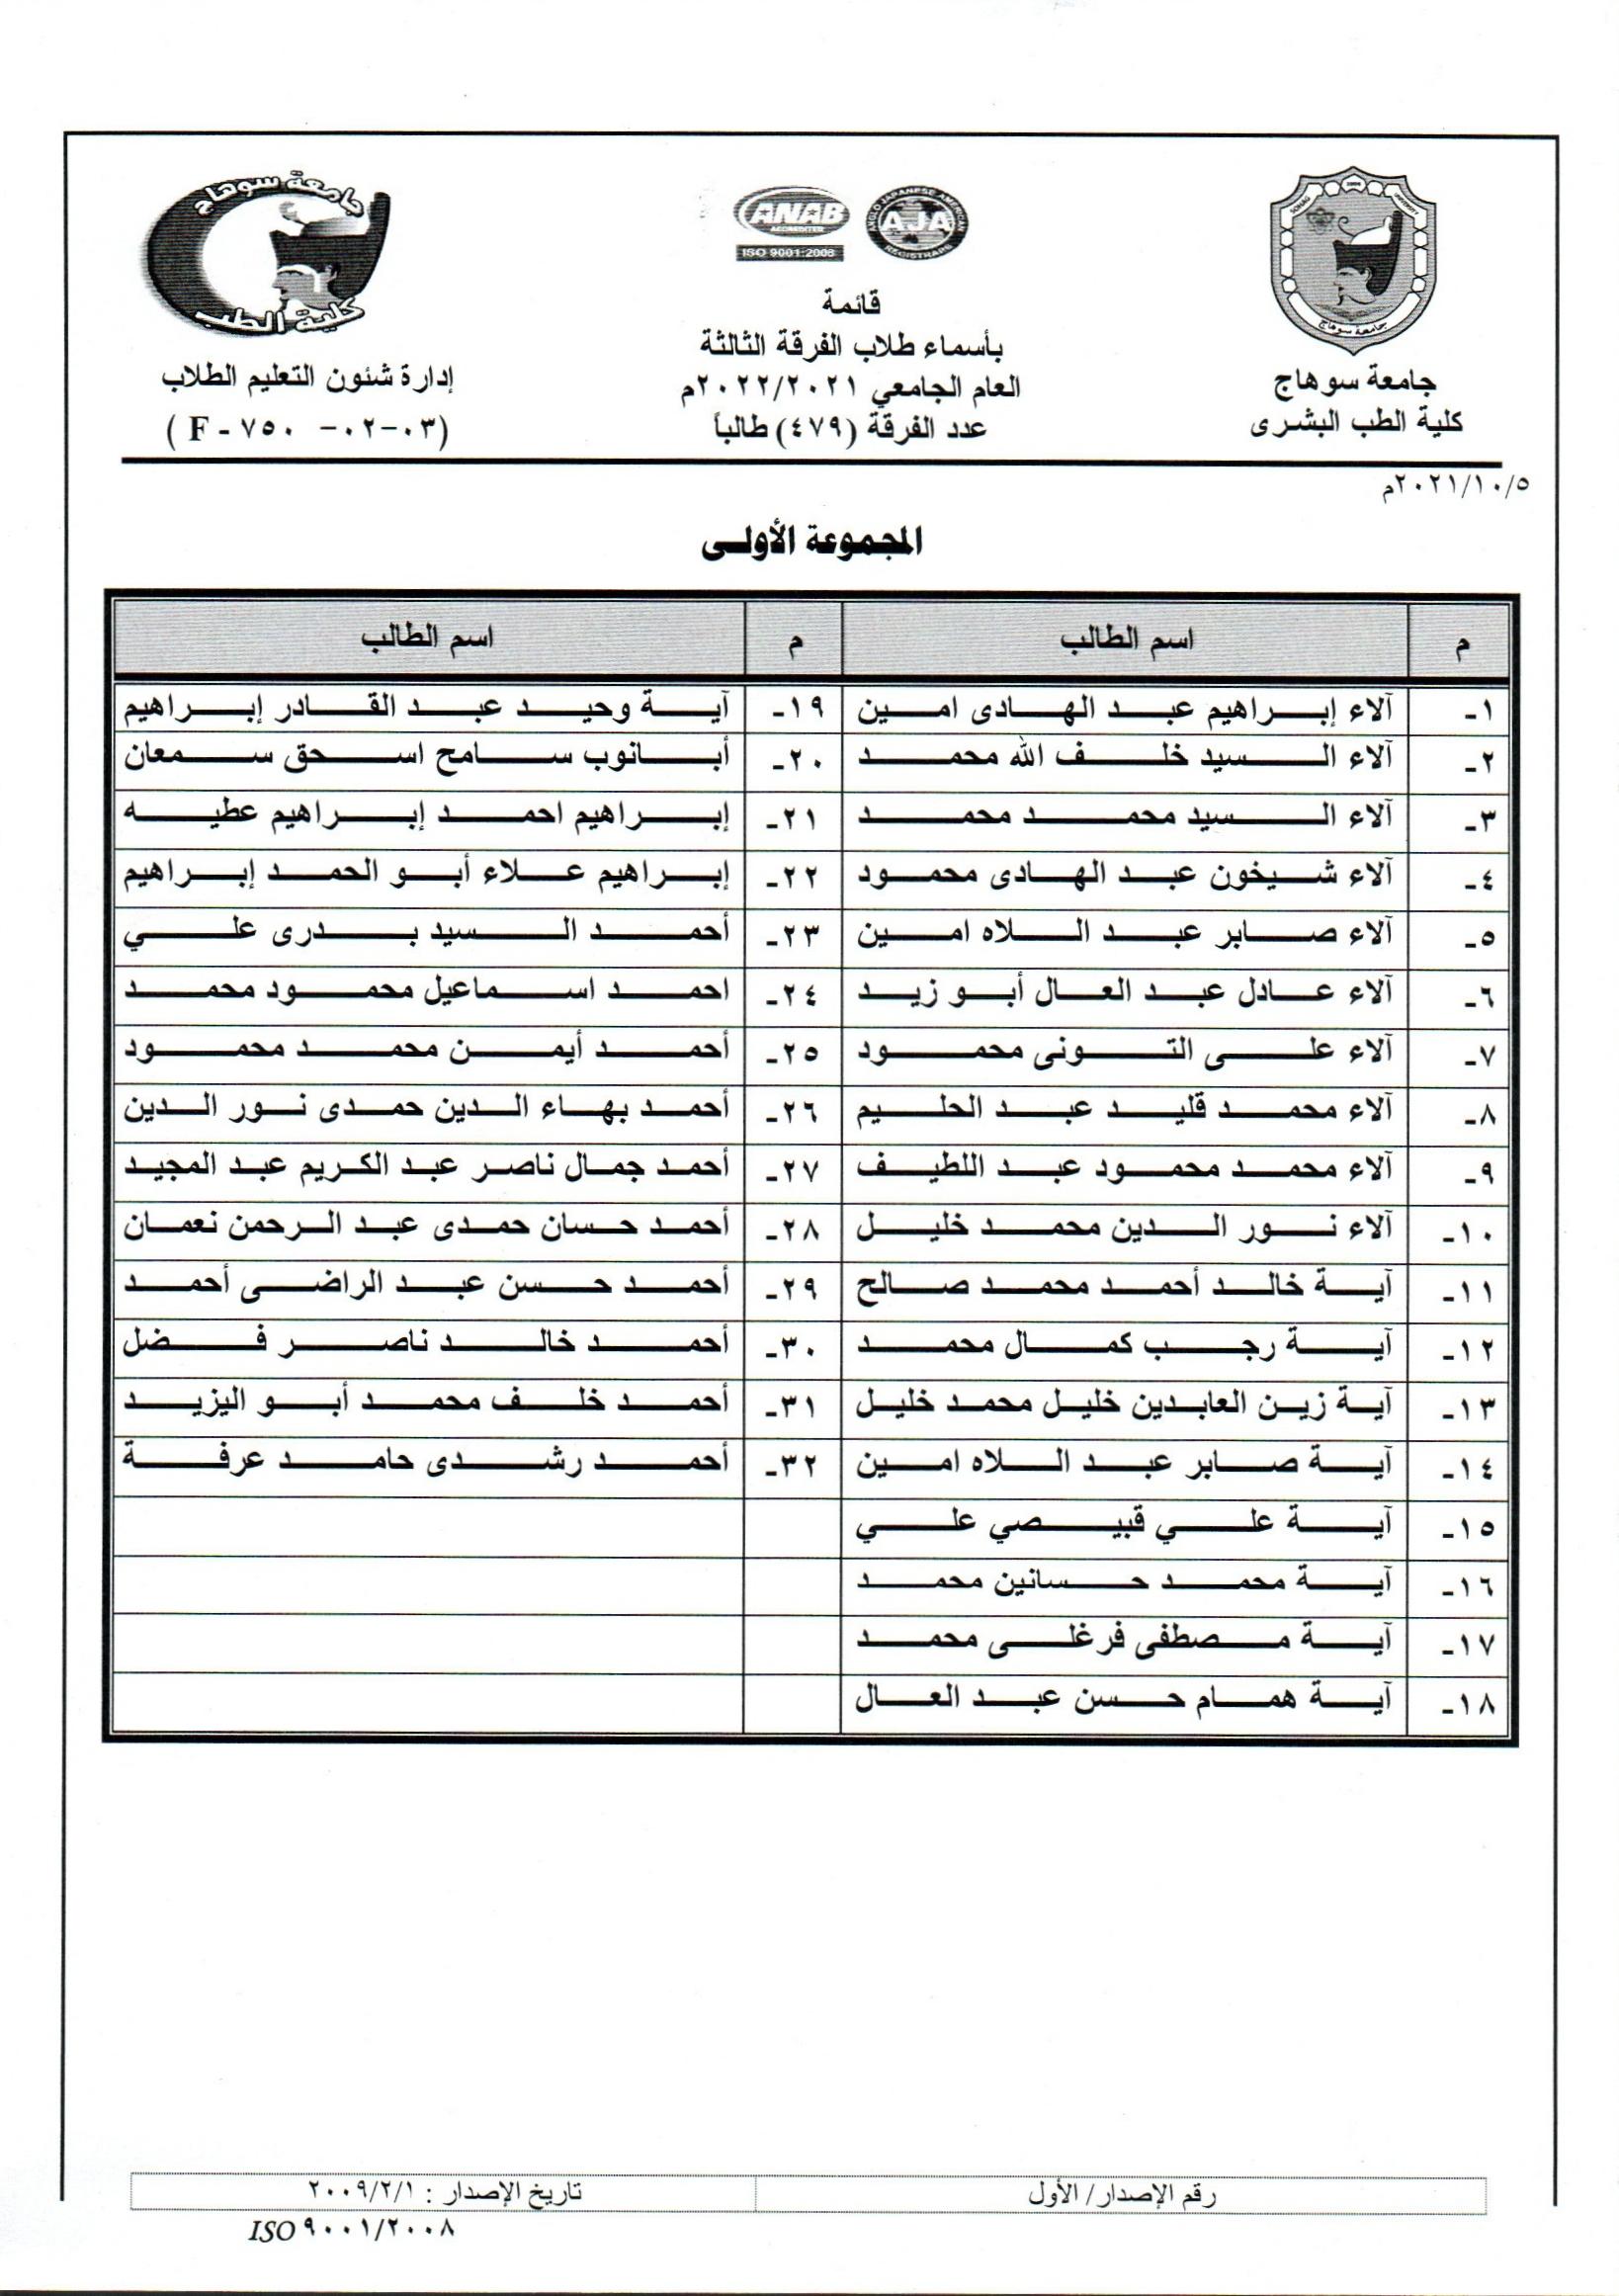 جامعة سوهاج
كلية الطب
ANAB
ACCREDITED
ISO 9001:2008
ANGLO JAPANESE AMERICAN
AJA
REGISTRARS
SOHAG UNIVERSITY
جامعة سوهاج
جامعة سوهاج
كلية الطب البشرى
قائمة
بأسماء طلاب الفرقة الثالثة
العام الجامعي ٢٠٢٢/٢٠٢١م
عدد الفرقة (٤٧٩) طالباً
إدارة شئون التعليم الطلاب
(F - ٧٥٠ -٠٢-٠٣)
٢٠٢١/١٠/٥م
المجموعة الأولى
م اسم الطالب م اسم الطالب
١- آلاء إبراهيم عبد الهادى امين ١٩- آية وحيد عبد القادر إبراهيم
٢- آلاء السيد خلف الله محمد ٢٠- أبانوب سامح اسحق سمعان
٣- آلاء السيد محمد محمد ٢١- إبراهيم احمد إبراهيم عطيه
٤- آلاء شيخون عبد الهادى محمود ٢٢- إبراهيم علاء أبو الحمد إبراهيم
٥- آلاء صابر عبد اللاه امين ٢٣- أحمد السيد بدرى علي
٦- آلاء عادل عبد العال أبو زيد ٢٤- احمد اسماعيل محمود محمد
٧- آلاء على التونى محمود ٢٥- أحمد أيمن محمد محمود
٨- آلاء محمد قليد عبد الحليم ٢٦- أحمد بهاء الدين حمدى نور الدين
٩- آلاء محمد محمود عبد اللطيف ٢٧- أحمد جمال ناصر عبد الكريم عبد المجيد
١٠- آلاء نور الدين محمد خليل ٢٨- أحمد حسان حمدى عبد الرحمن نعمان
١١- آية خالد أحمد محمد صالح ٢٩- أحمد حسن عبد الراضى أحمد
١٢- آية رجب كمال محمد ٣٠- أحمد خالد ناصر فضل
١٣- آية زين العابدين خليل محمد خليل ٣١- أحمد خلف محمد أبو اليزيد
١٤- آية صابر عبد اللاه امين ٣٢- أحمد رشدى حامد عرفة
١٥- آية علي قبيصي علي
١٦- آية محمد حسانين محمد
١٧- آية مصطفى فرغلى محمد
١٨- آية همام حسن عبد العال
رقم الإصدار/ الأول تاريخ الإصدار : ٢٠٠٩/٢/١
ISO ٩٠٠١/٢٠٠٨